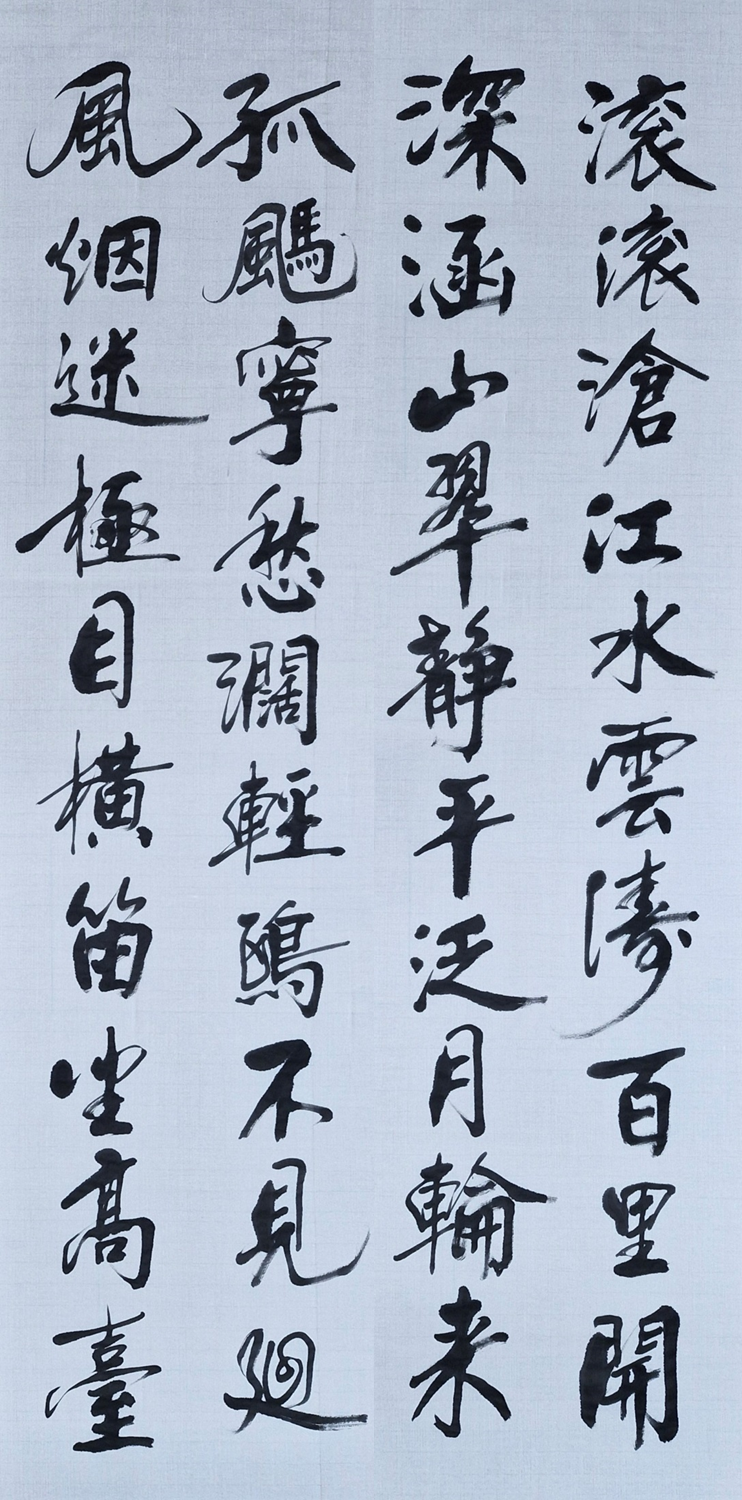 滾滾滄江水雲濤百里開
深涵山翠靜平泛月輪来
孤颿寧愁濶輕鷗不見廻
風烟迷極目橫笛坐髙臺